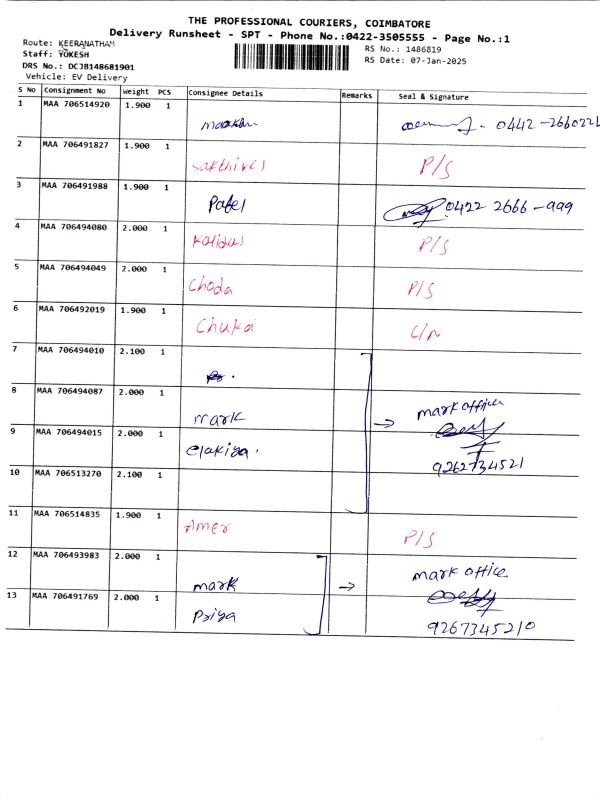 THE PROFESSIONAL COURIERS, COIMBATORE
Delivery Runsheet - SPT - Phone No.:0422-3505555 - Page No.:1
Route: KEERANATHAM
Staff: YOKESH
DRS No.: DCJB148681901
Vehicle: EV Delivery
RS No.: 1486819
RS Date: 07-Jan-2025
S No Consignment No Weight PCS Consignee Details Remarks Seal & Signature
1 MAA 706514920 1.900 1 0442-2660221
2 MAA 706491827 1.900 1 Sakthivel P/S
3 MAA 706491988 1.900 1 Patel 0422 2666-999
4 MAA 706494080 2.000 1 Kalidas P/S
5 MAA 706494049 2.000 1 Choda P/S
6 MAA 706492019 1.900 1 Chuka C/n
7 MAA 706494010 2.100 1
8 MAA 706494087 2.000 1 mark → mark office
9 MAA 706494015 2.000 1 elakiya. 9262734521
10 MAA 706513270 2.100 1
11 MAA 706514835 1.900 1 Amer P/S
12 MAA 706493983 2.000 1 mark → mark office
13 MAA 706491769 2.000 1 Priya 9267345210